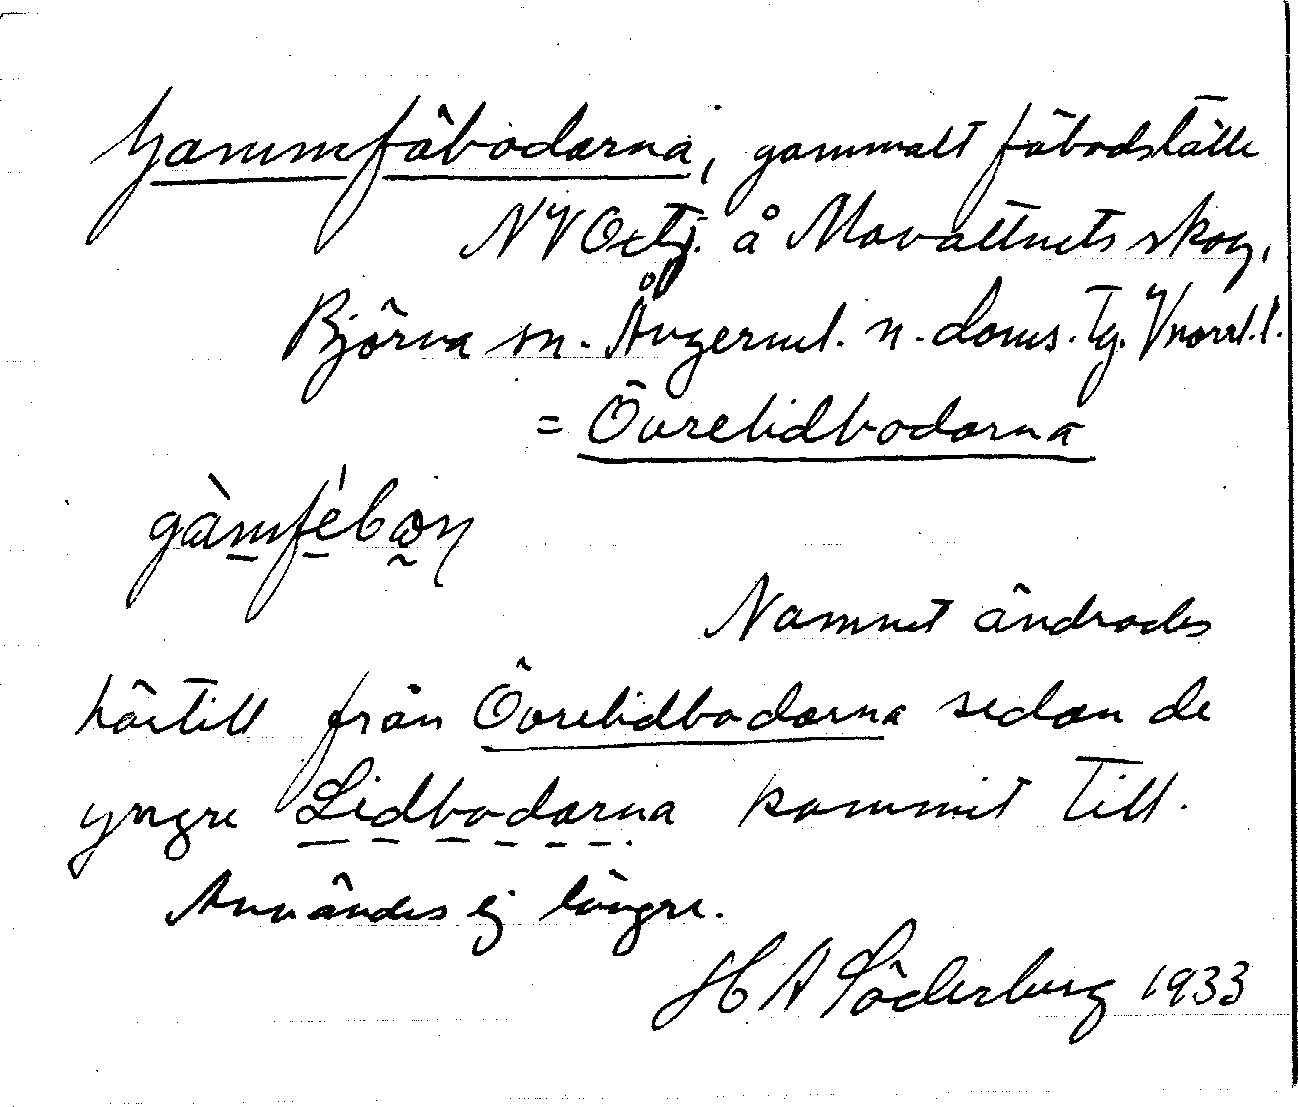 Gammfäbodarna, gammalt fäbodställe
NV Oxtj. å Movattnets skog,
Björna sn. Ångerml. n. doms. Tg. Vnorrl. l.
= Övrelidbodarna
gàmfèbɷn
Namnet ändrades
härtill från Övrelidbodarna sedan de
yngre Lidbodarna kommit till.
Användes ej längre.
H A Söderberg 1933